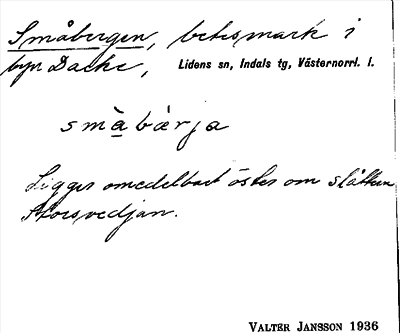 Småbergen, betesmark i
byn Dacke, Lidens sn, Indals tg, Västernorrl. l.
småbärja
Ligger omedelbart öster om slåtten
Storsvedjan.
VALTER JANSSON 1936